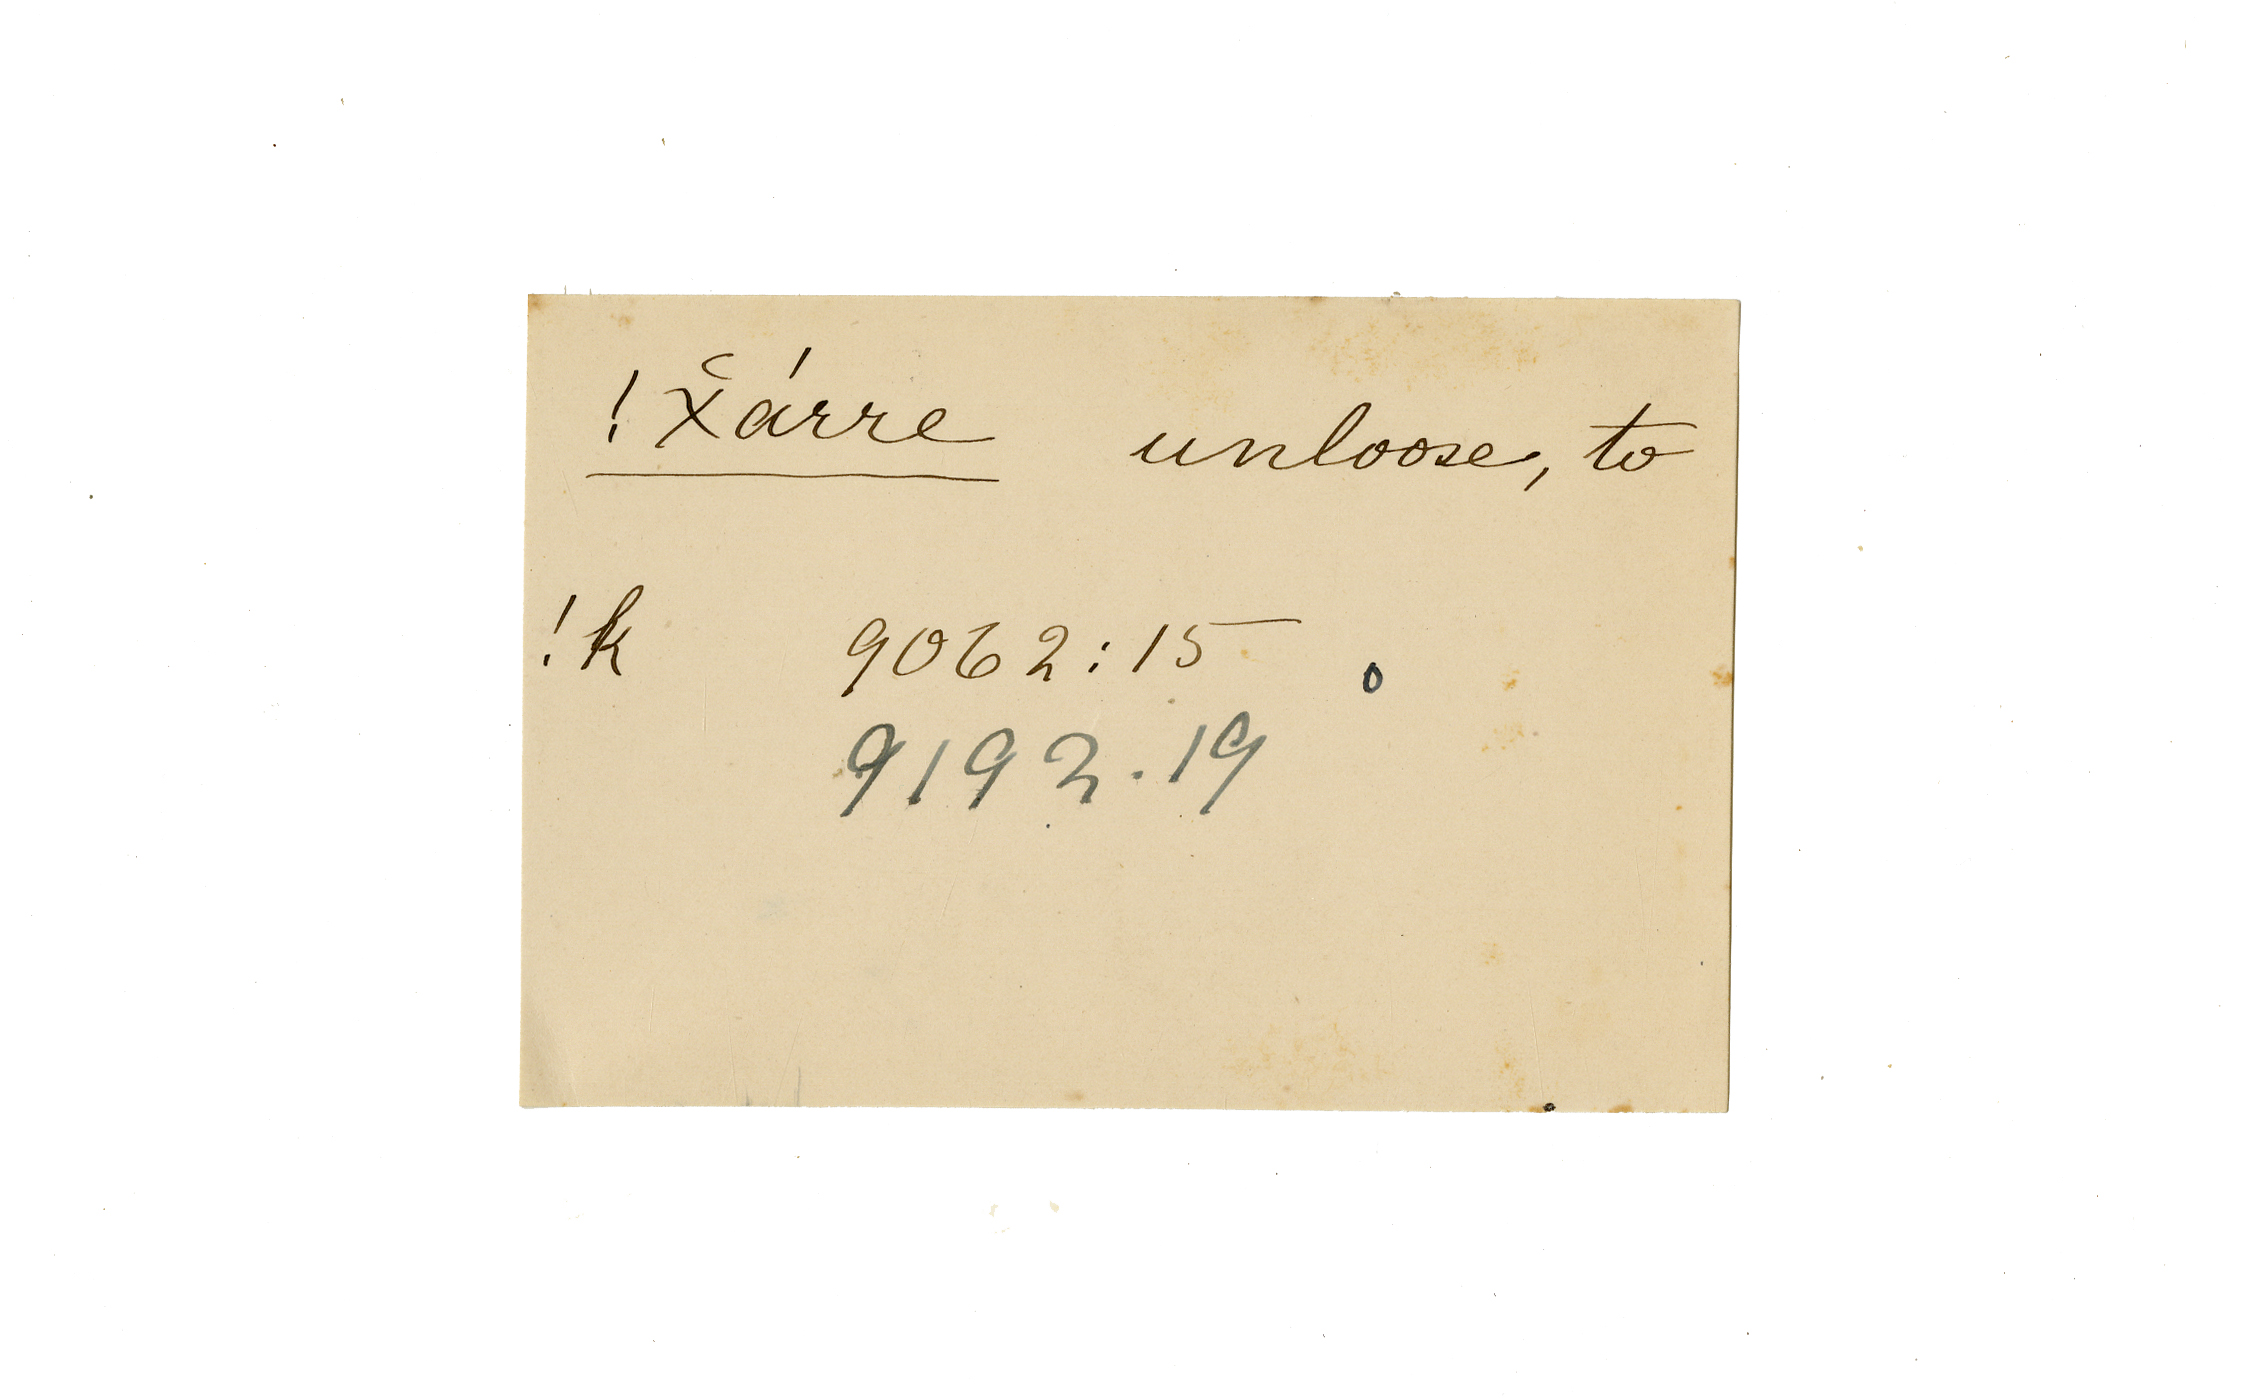 !x̆árre unloose, to
!k 9062:15 o
9192.19